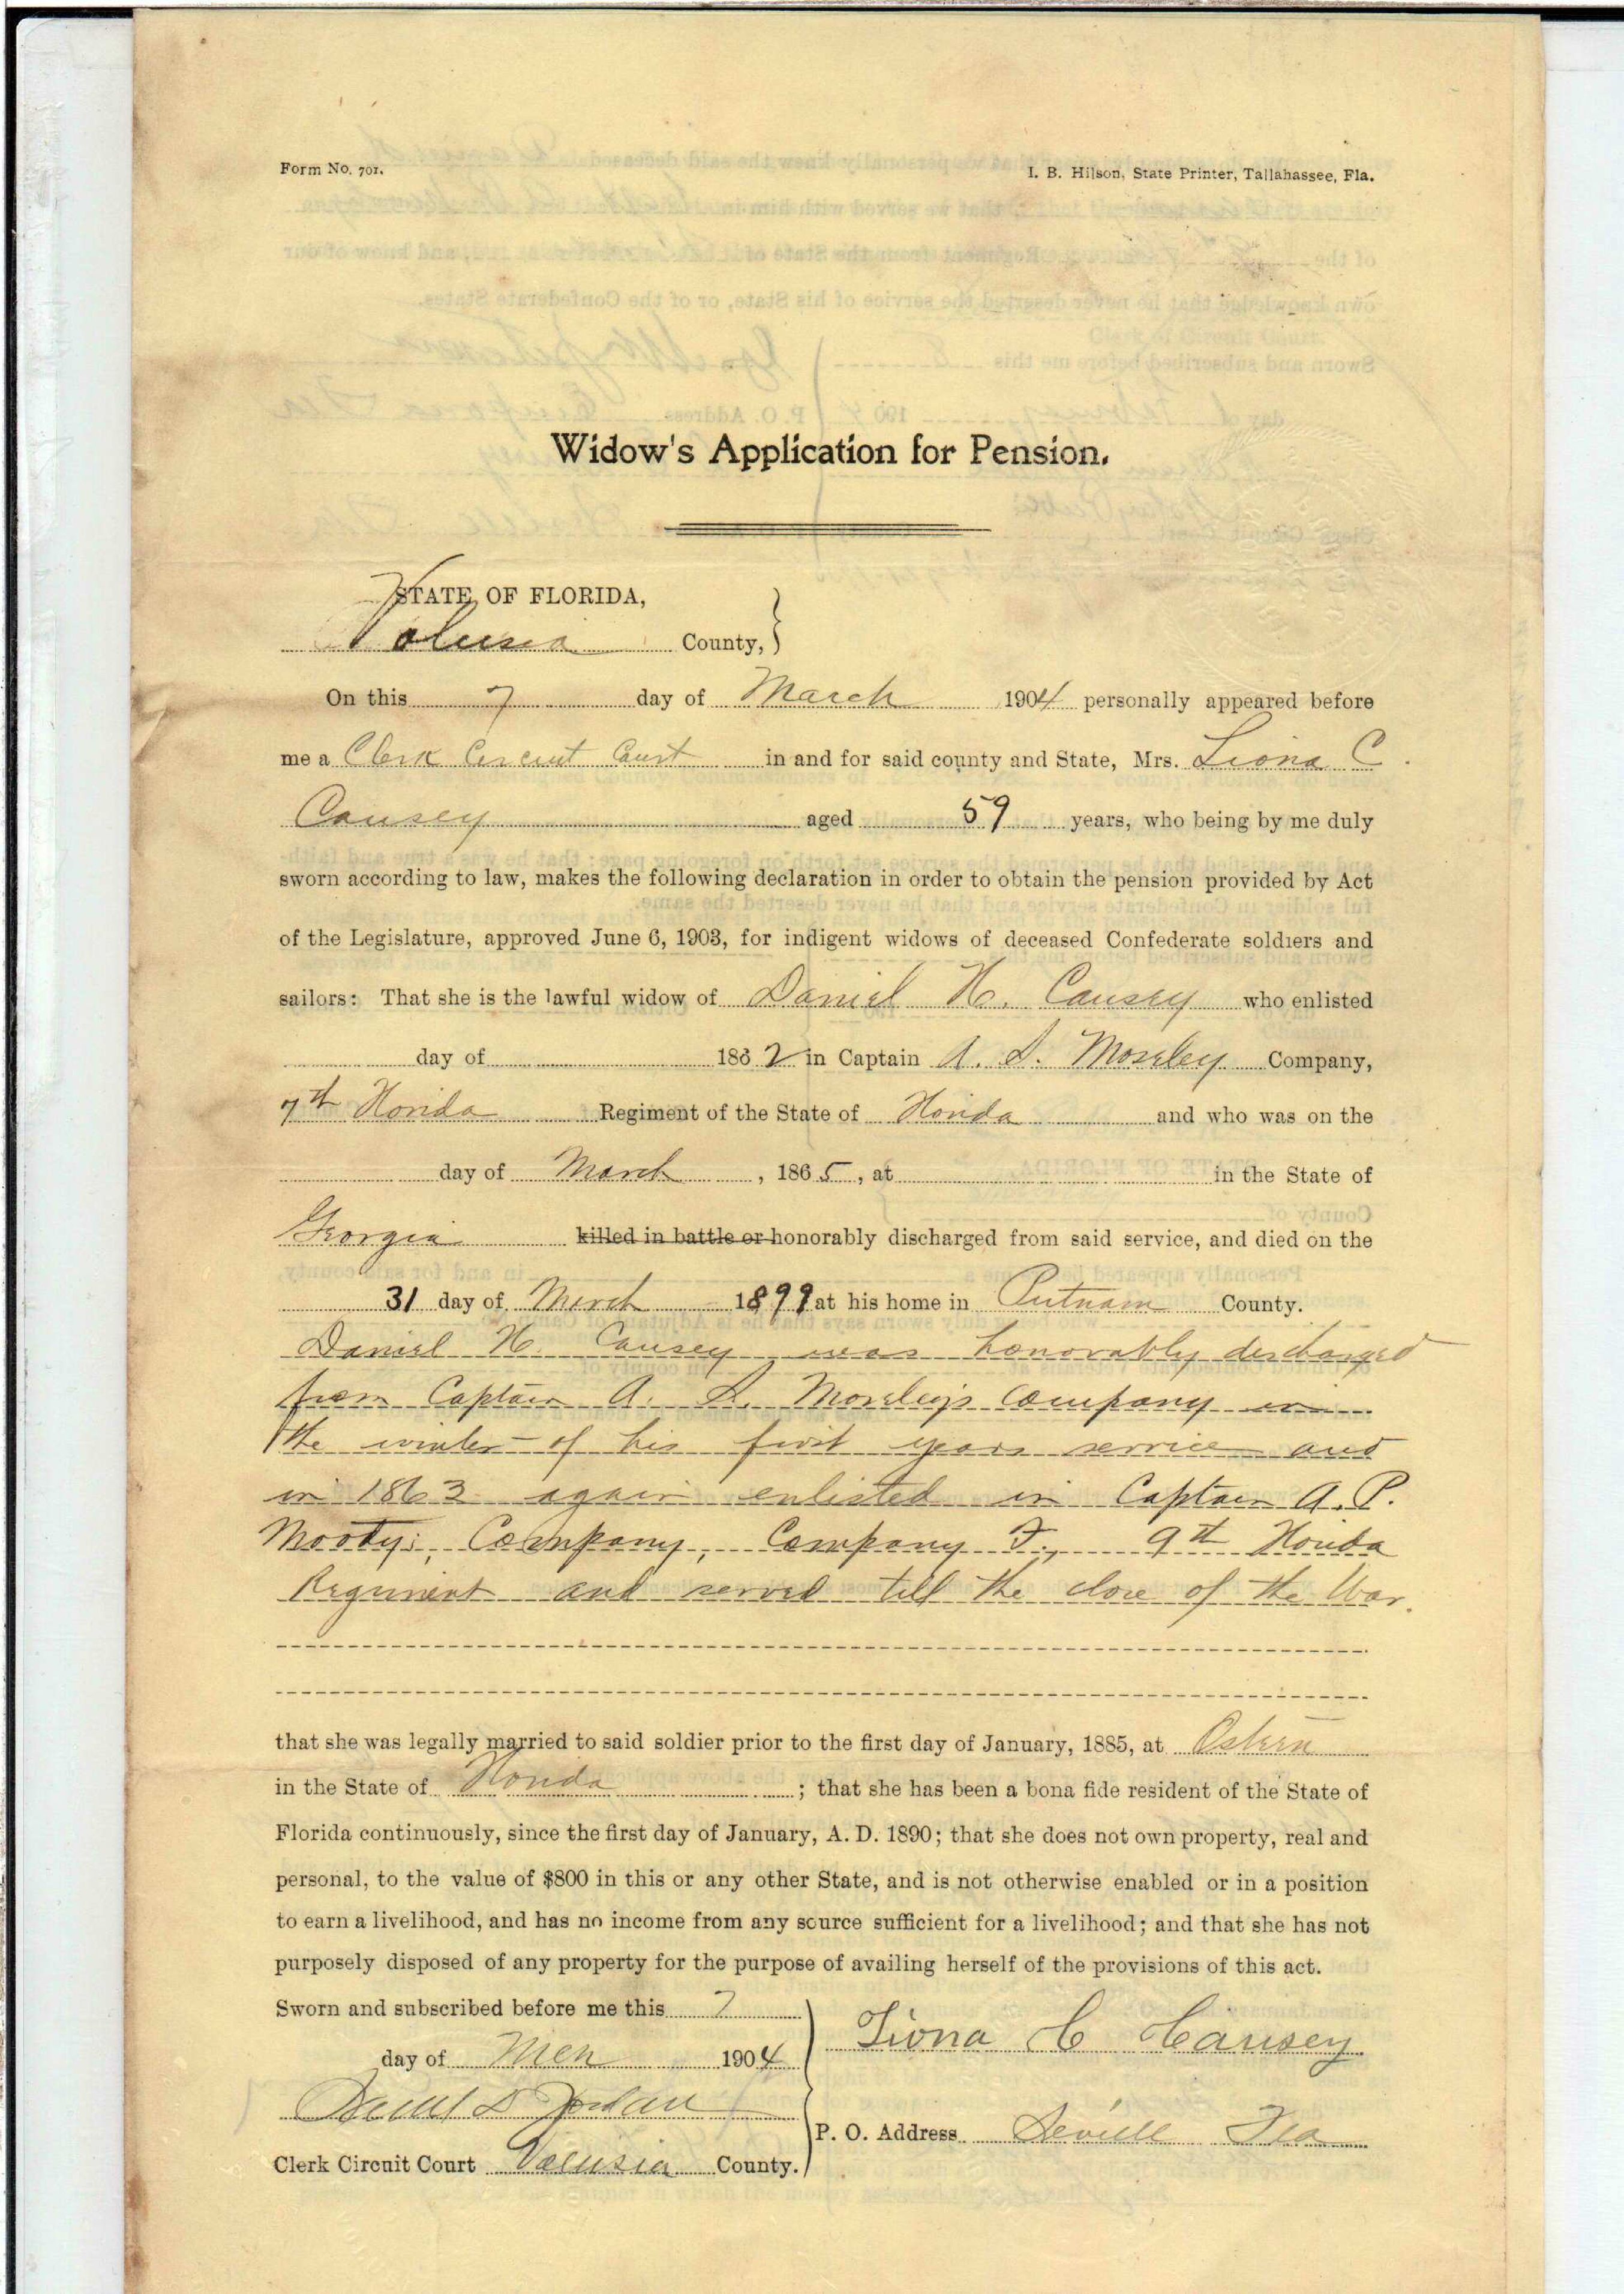 Form No. 701.
I. B. Hilson, State Printer, Tallahassee, Fla.
Widow's Application for Pension.
STATE OF FLORIDA,
Volusia County,
On this 7 day of March 1904 personally appeared before
me a Clerk Circuit Court in and for said county and State, Mrs. Liona C
Causey aged 59 years, who being by me duly
sworn according to law, makes the following declaration in order to obtain the pension provided by Act
of the Legislature, approved June 6, 1903, for indigent widows of deceased Confederate soldiers and
sailors: That she is the lawful widow of Daniel H. Causey who enlisted
day of 1862 in Captain A. S. Moseley Company,
7th Florida Regiment of the State of Florida and who was on the
day of March, 1865, at in the State of
Georgia killed in battle or honorably discharged from said service, and died on the
31 day of March 1899 at his home in Putnam County.
Daniel H. Causey was honorably discharged
from Captain A. S. Moseleys Company in
the winter of his first years service and
in 1863 again enlisted in Captain A. P.
Moody's, Company, Company I., 9th Florida
Regiment and served till the close of the War.
that she was legally married to said soldier prior to the first day of January, 1885, at Osteen
in the State of Florida; that she has been a bona fide resident of the State of
Florida continuously, since the first day of January, A. D. 1890; that she does not own property, real and
personal, to the value of $800 in this or any other State, and is not otherwise enabled or in a position
to earn a livelihood, and has no income from any source sufficient for a livelihood; and that she has not
purposely disposed of any property for the purpose of availing herself of the provisions of this act.
Sworn and subscribed before me this 7
day of Mch 1904
Liona C Causey
Jordan
P. O. Address Seville Fla
Clerk Circuit Court Volusia County.